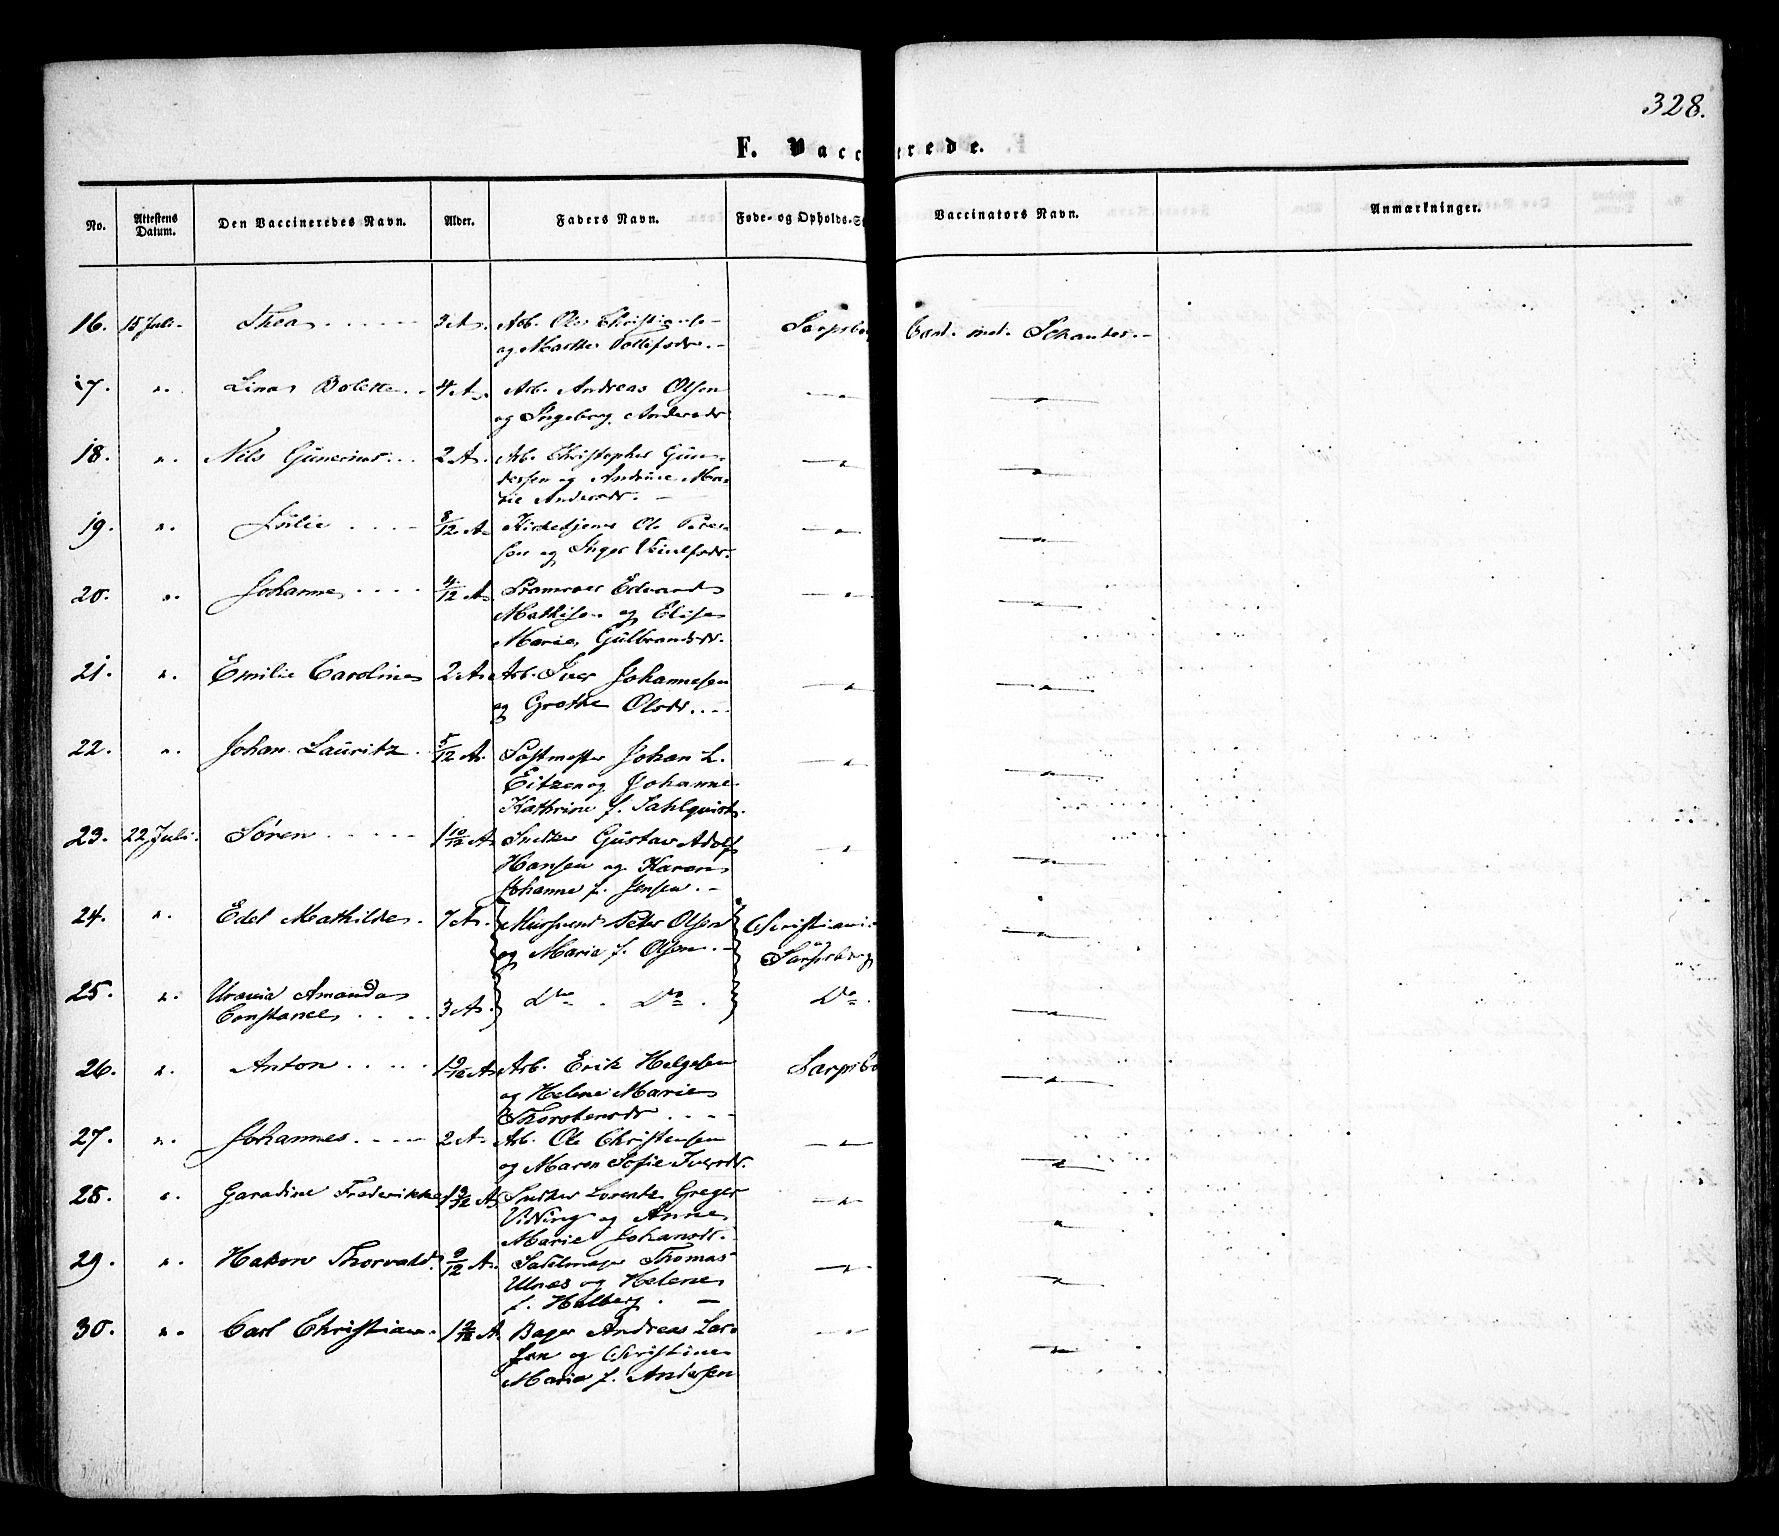 328.
F. Vaccinerede.
No.
Attestens Datum.
Den Vaccineredes Navn.
Alder.
Faders Navn.
Føde- og Opholds-S
Vaccinators Navn.
Anmærkninger.
16. 15 Juli. Thea 3 A. Arb. Ole Sarpsbo Cand. med.
og Marthe
17. " 4 A. Arb. Andreas Olsen
og Ingeborg Andersdr
18. " Nils Gunerius 2 A. Arb. Christopher Gun-
dersen og Andrine Ma-
rie Andersdr.
19. " Julie 8/12 A. Ole Peter-
sen og Inger
20. " Johanne 4/12 A. Edvard
Mathisen og Elise
Marie Gulbrandsdr.
21. " Emilie Caroline 2 A. Arb. Iver Johannesen
og Grethe Olsdr.
22. " Johan Lauritz 5/12 A. Postmester Johan L.
Eitzen og Johanne
Kathrine f. Sahlqvist.
23. 22 Juli. Søren 1 10/12 A. Snedker Gustav Adolf
Hansen og Karen
Johanne f. Jensen.
24. " Edel Mathilde 7 A. Peter Olsen Christiani
og Marie f. Olsen. Sarpsborg
25. " Urania Amanda
Constance 3 A. Do. Do. Do.
26. " Anton Arb. Erik Helgesen Sarpsbo
og Helene Marie
Thorstensdr
27. " Johannes 2 A. Arb. Ole Christensen
og Maren Sofie Iversdr.
28. " Garadine Frederikke Snedker Lorentz Greger
Viding og Anne
Marie Johansdr.
29. " Hakon Thorvald 9/12 A. Sadelmager Thomas
Ulnes og Helene
f. Halberg.
30. " Carl Christian Bager Andreas Lar-
sen og Christine
Marie f. Andersen